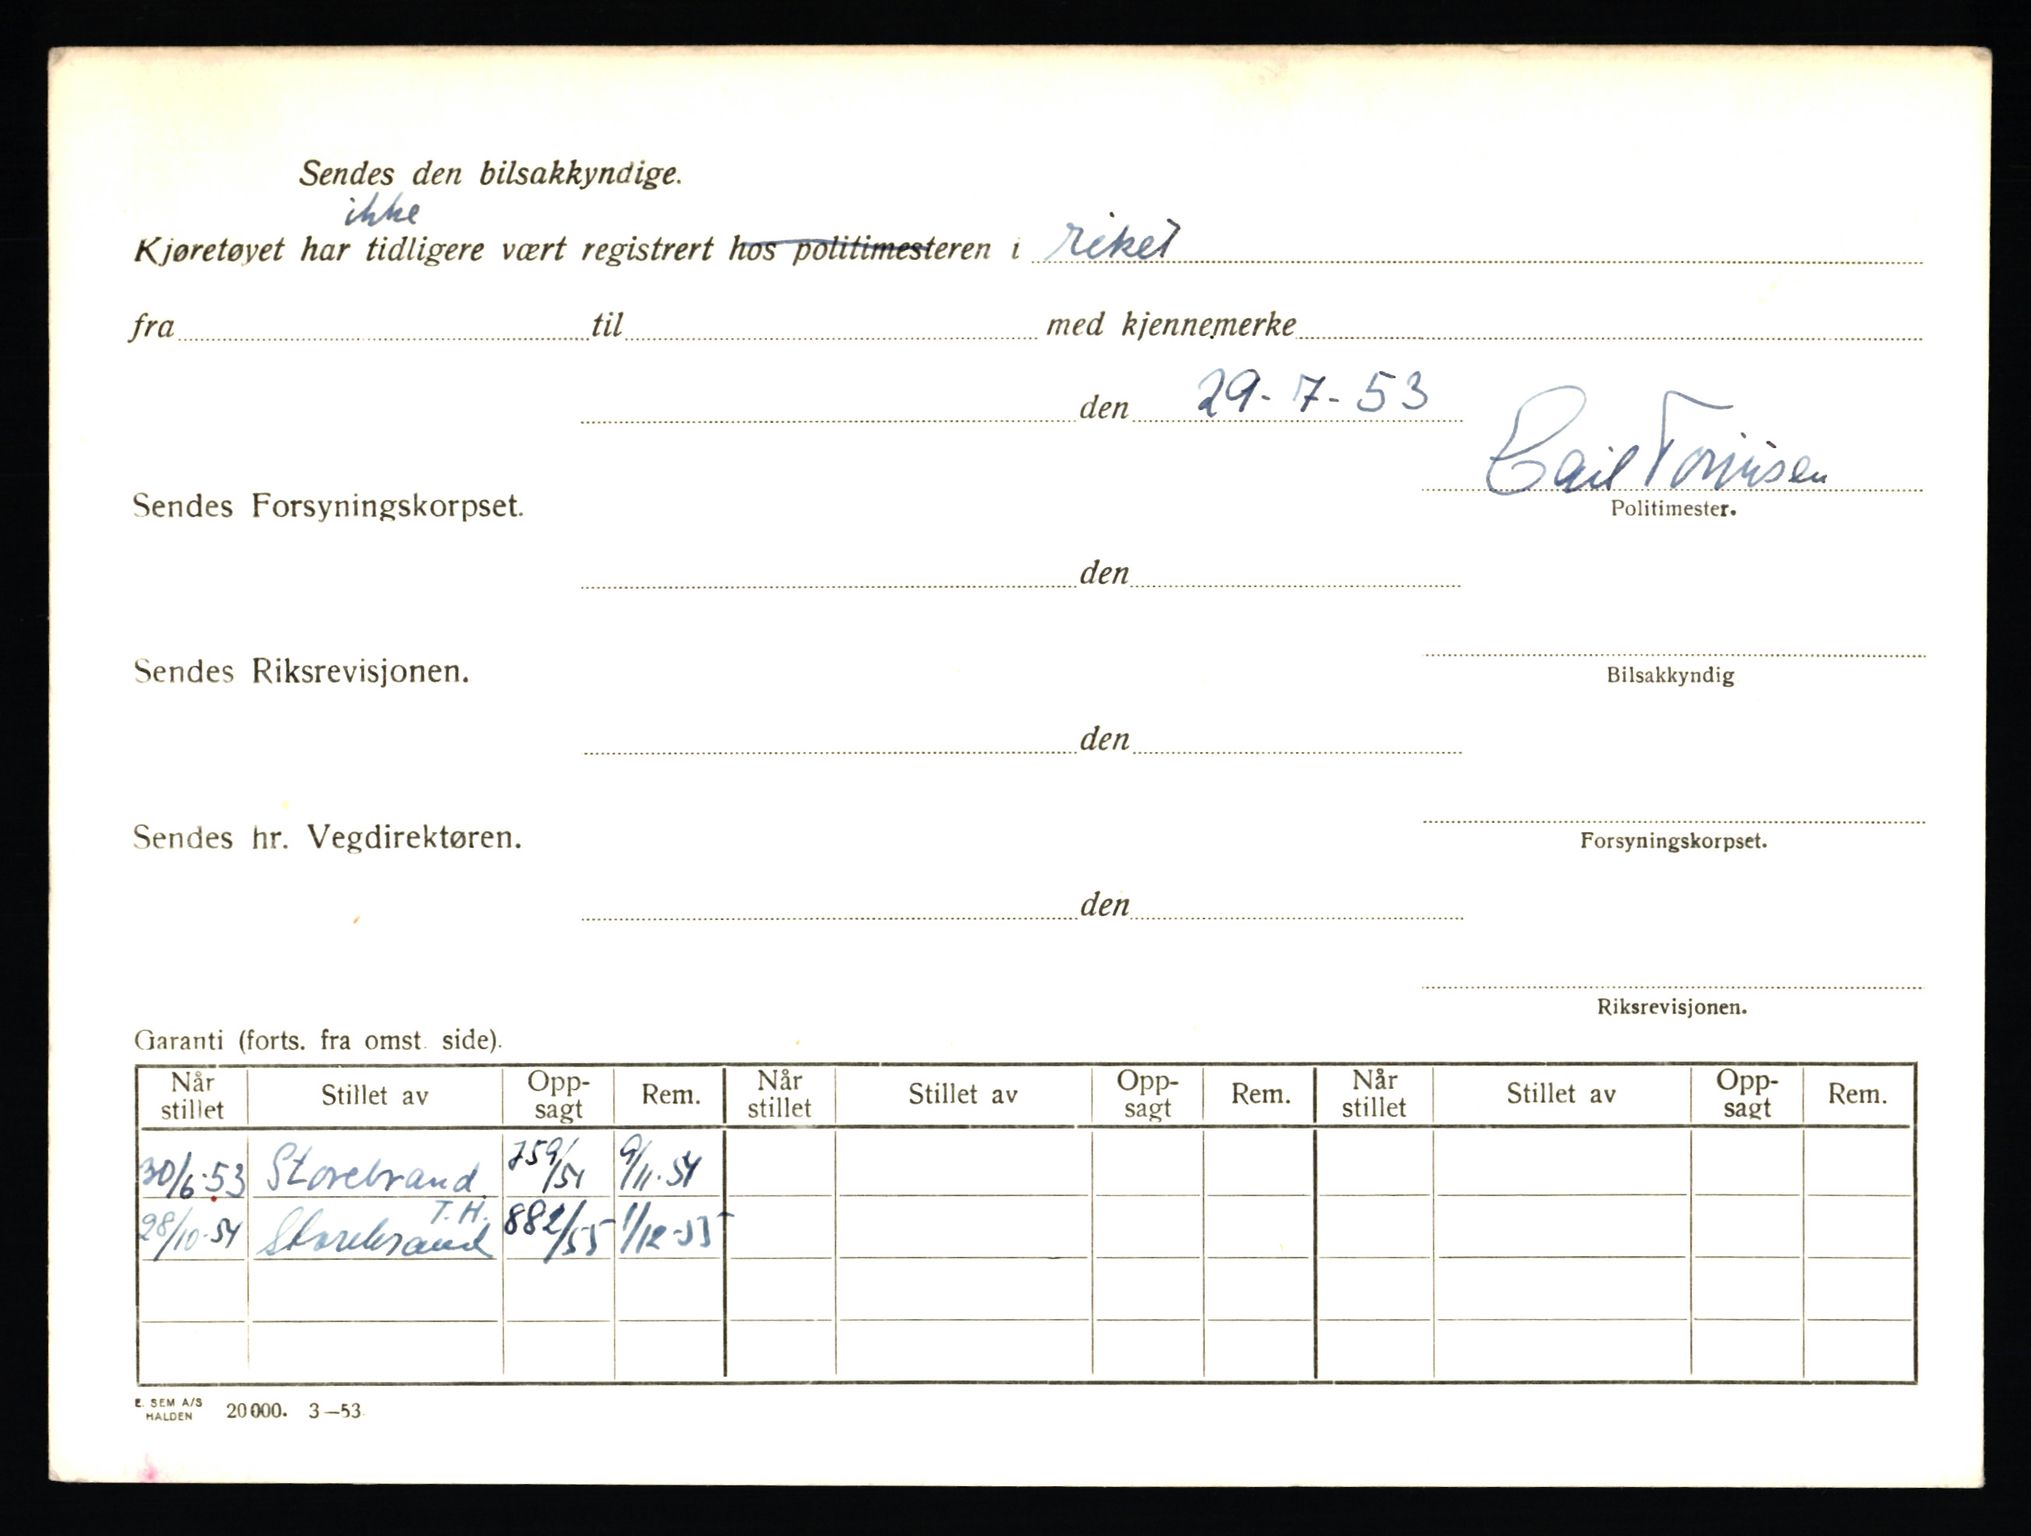 Sendes den bilsakkyndige.
ikke
Kjøretøyet har tidligere vært registrert hos politimesteren i riket
fra til med kjennemerke
den 29-7-53
Sendes Forsyningskorpset.
Politimester.
den
Sendes Riksrevisjonen.
Bilsakkyndig
den
Sendes hr. Vegdirektøren.
Forsyningskorpset.
den
Riksrevisjonen.
Garanti (forts. fra omst. side).
Når stillet Stillet av Opp-sagt Rem. Når stillet Stillet av Opp-sagt Rem. Når stillet Stillet av Opp-sagt Rem.
30/6-53 Storebrand 759/54 9/11-54
28/10-54 Storebrand T.H. 882/55 1/12-55
E. SEM A/S
HALDEN 20000. 3—53.